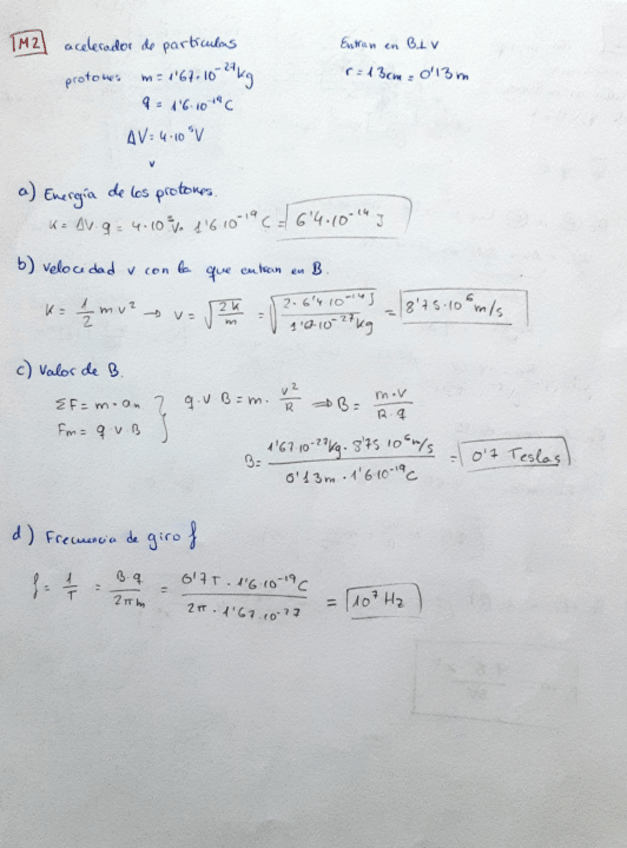 M2 acelerador de partículas
Entran en B⊥V
protones m = 1'67·10⁻²⁷kg
r = 13cm = 0'13m
q = 1'6·10⁻¹⁹C
ΔV = 4·10⁵V
v
a) Energía de los protones.
K = ΔV·q = 4·10⁵V· 1'6·10⁻¹⁹C = 6'4·10⁻¹⁴J
b) Velocidad v con la que entran en B.
K = 1/2 m v² → v = √(2K/m) = √(2·6'4·10⁻¹⁴J / 10⁻²⁷kg) = 8'75·10⁶ m/s
c) Valor de B.
ΣF = m·aₙ
Fm = q·v·B
} q·v·B = m· v²/R ⇒ B = m·v / R·q
B = 1'67·10⁻²⁷kg· 8'75·10⁶m/s / 0'13m · 1'6·10⁻¹⁹C = 0'7 Teslas
d) Frecuencia de giro f
f = 1/T = B·q / 2πm = 0'7T · 1'6·10⁻¹⁹C / 2π · 1'67·10⁻²⁷ = 10⁷ Hz